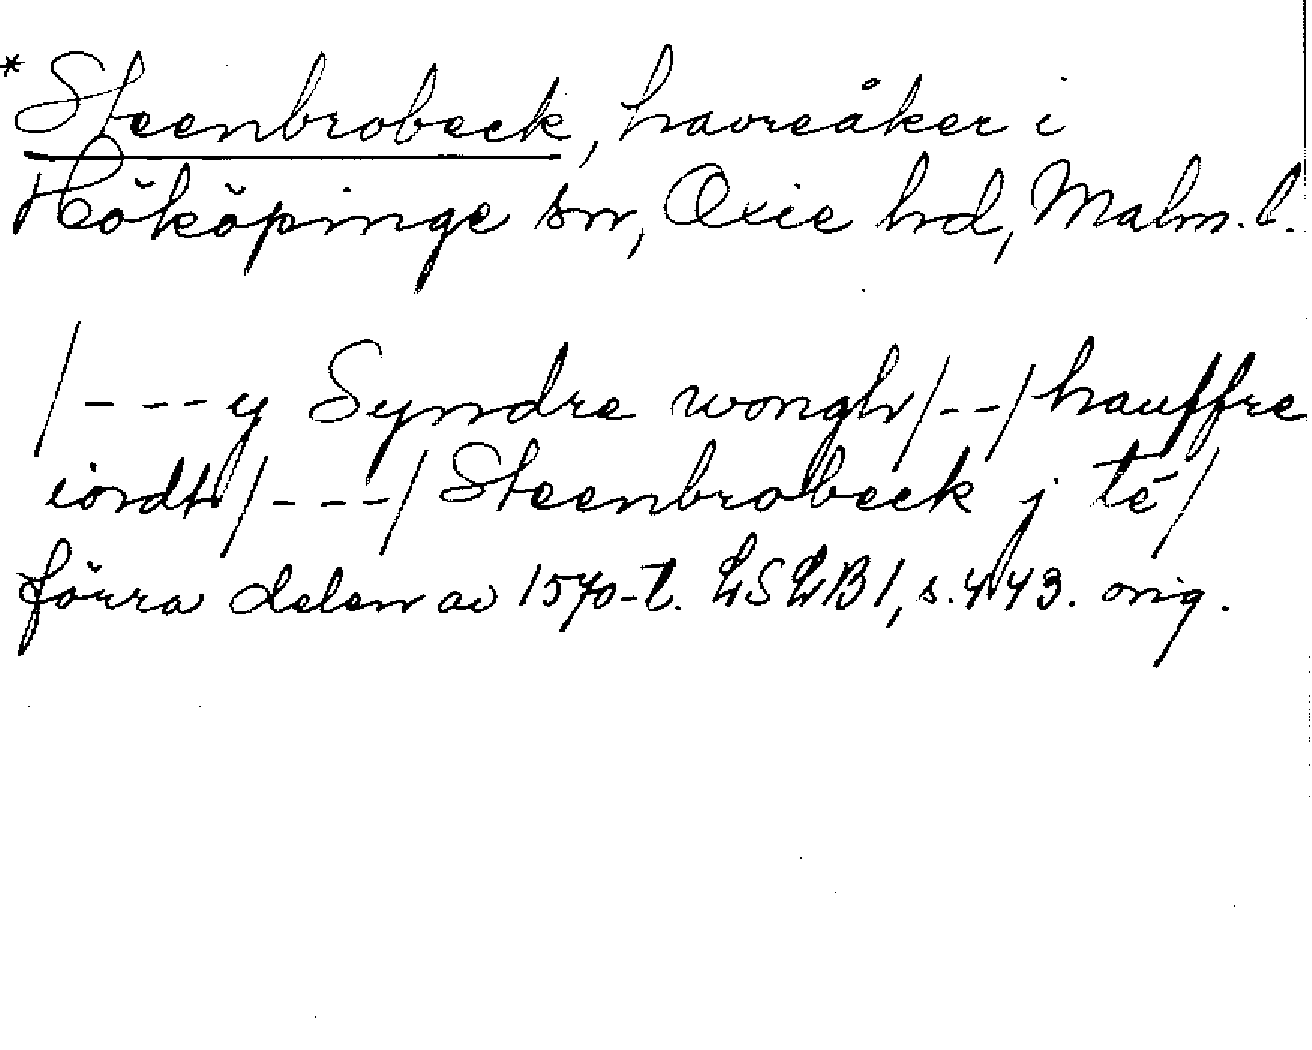 * Steenbrobeck, havreåker i
Hököpinge sn, Oxie hd, Malm. l.
/---y Syndre wongh/--/hauffre
iordt/---/Steenbrobeck j té/
förra delen av 1570-t. LSLB1, s. 443. orig.